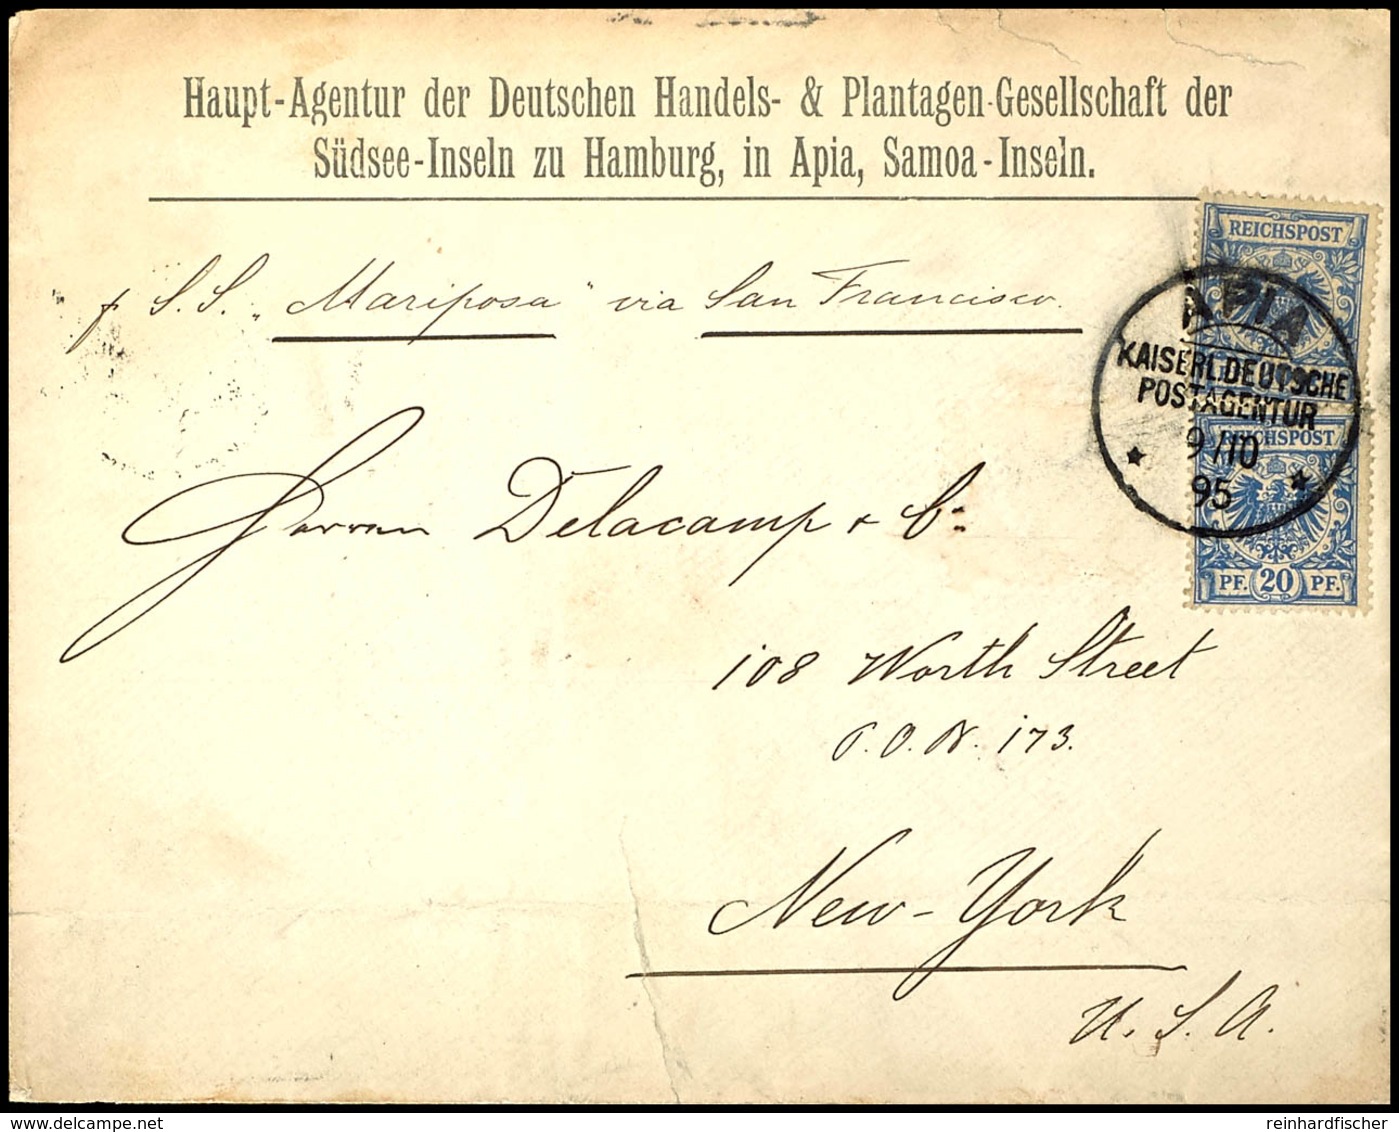 Haupt-Agentur der Deutschen Handels- & Plantagen-Gesellschaft der
Südsee-Inseln zu Hamburg, in Apia, Samoa-Inseln.
REICHSPOST
p S.S. „Mariposa" via San Francisco.
APIA
KAISERL. DEUTSCHE
POSTAGENTUR
9/10
95
REICHSPOST
PF. 20 PF.
Herren Delacamp & Co:
108 Worth Street
P.O.N. 173.
New-York
U.S.A.
reinhardfischer